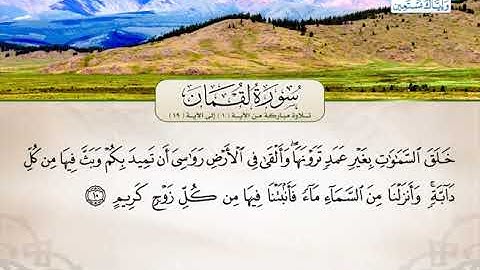 وإياك نستعين
سورة لقمان
تلاوة مباركة من الآية (١) إلى الآية (١٩)
خَلَقَ ٱلسَّمَٰوَٰتِ بِغَيْرِ عَمَدٍ تَرَوْنَهَا ۖ وَأَلْقَىٰ فِي ٱلْأَرْضِ رَوَٰسِيَ أَن تَمِيدَ بِكُمْ وَبَثَّ فِيهَا مِن كُلِّ
دَآبَّةٍ ۚ وَأَنزَلْنَا مِنَ ٱلسَّمَآءِ مَآءً فَأَنۢبَتْنَا فِيهَا مِن كُلِّ زَوْجٍ كَرِيمٍ ۝١٠